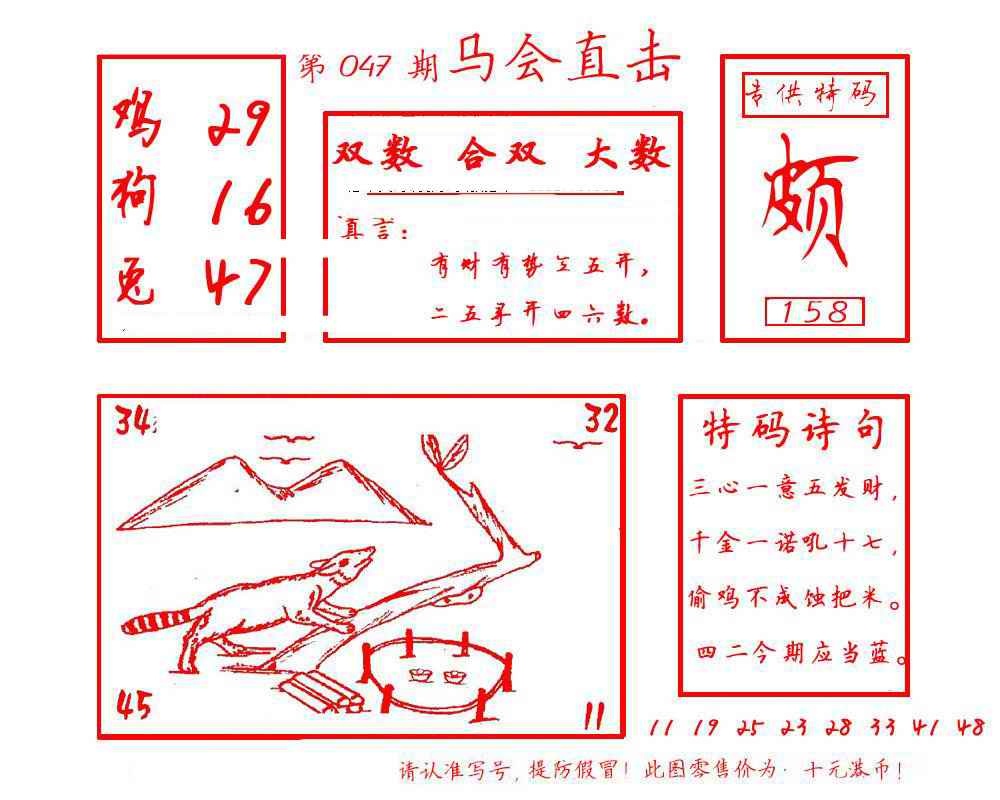 第 047 期 马会直击
鸡 29
狗 16
兔 47
双数 合双 大数
真言：
有财有势五开，
二五寻开四六数。
专供特码
颇
158
34
32
45
11
特码诗句
三心一意五发财，
千金一诺吼十七，
偷鸡不成蚀把米。
四二今期应当蓝。
11 19 25 23 28 33 41 48
请认准写号，提防假冒！此图零售价为·十元港币！